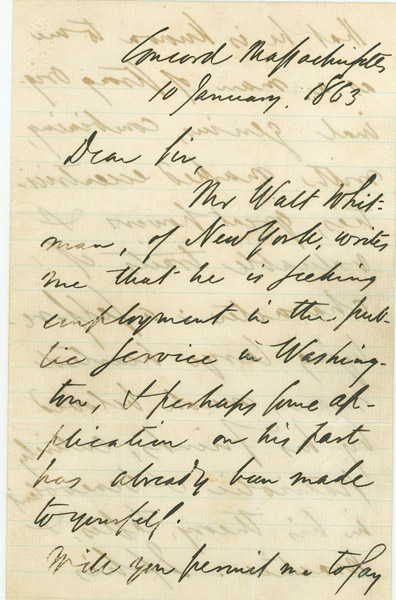 Concord Massachusetts
10 January. 1863
Dear Sir,
Mr Walt Whit-
man, of New York, writes
me that he is seeking
employment in the pub-
lic service in Washing-
ton, & perhaps some ap-
plication on his part
has already been made
to yourself.
Will you permit me to say